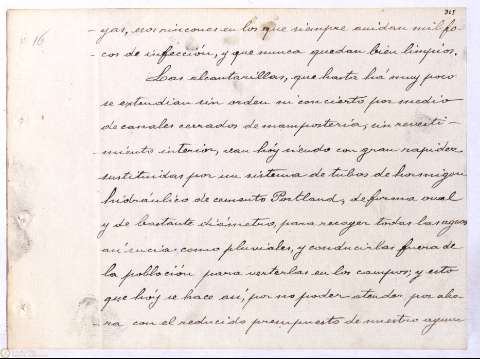 315
16
-yas, esos rincones en los que siempre anidan mil fo-
-cos de infección, y que nunca quedan bien limpios.
Las alcantarillas, que hasta ha muy poco
se extendían sin orden ni concierto por medio
de canales cerrados de mampostería, sin revesti-
-miento interior, van hoy siendo con gran rapidez
sustituidas por un sistema de tubos de hormigón
hidráulico de cemento Portland, de forma oval
y de bastante diámetro, para recoger todas las aguas
así sucias como pluviales, y conducirlas fuera de
la población para verterlas en los campos; y esto
que hoy se hace así, por no poder atender por aho-
-ra con el reducido presupuesto de nuestro ayun